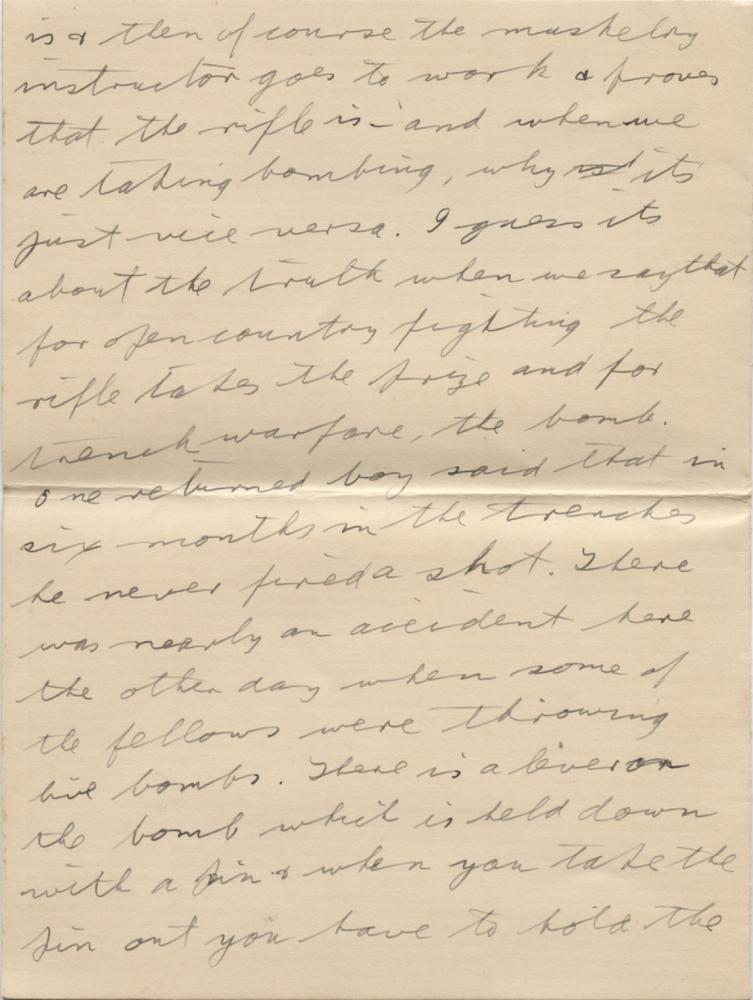 is & then of course the musketry
instructor goes to work & proves
that the rifle is - and when we
are taking bombing, why its
just vice versa. I guess its
about the truth when we say that
for open country fighting the
rifle takes the prize and for
trench warfare, the bomb.
One returned boy said that in
six months in the trenches
he never fired a shot. There
was nearly an accident here
the other day when some of
the fellows were throwing
live bombs. There is a lever on
the bomb which is held down
with a pin & when you take the
pin out you have to hold the